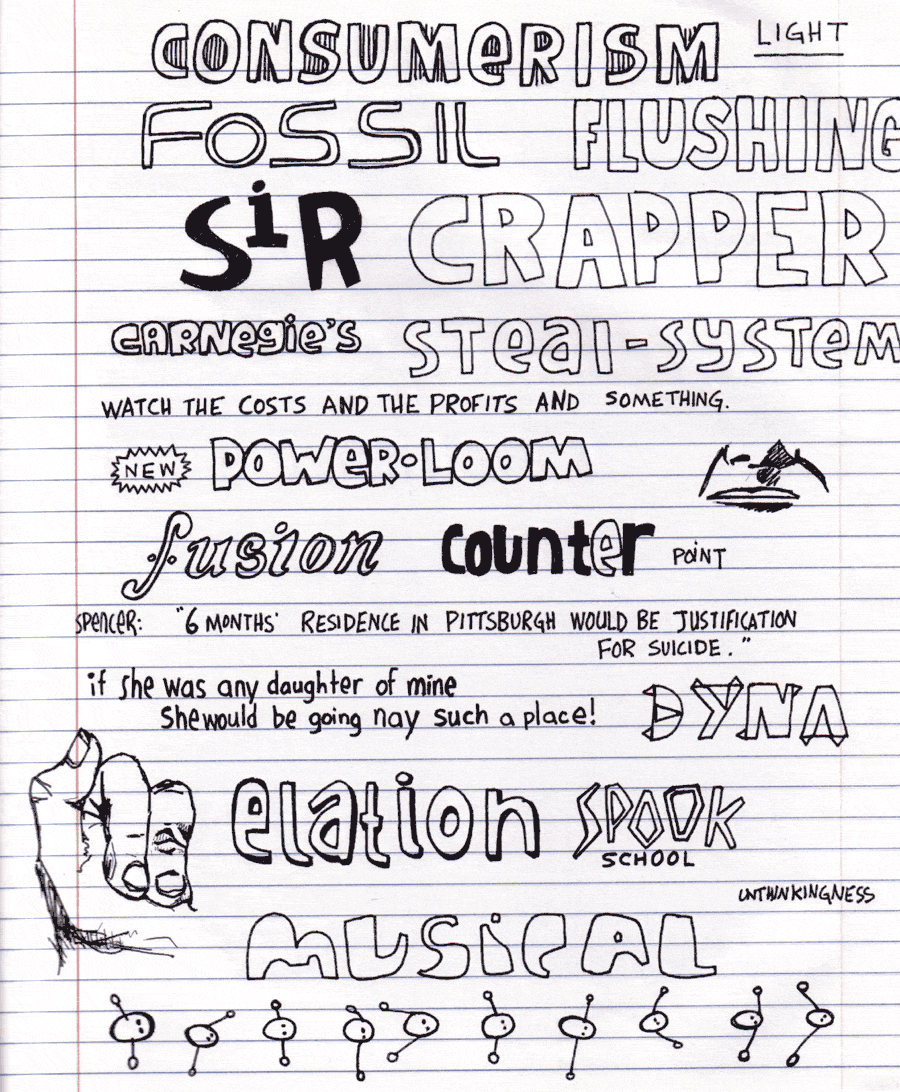 CONSUMERISM LIGHT
FOSSIL FLUSHING
SiR CRAPPER
CARNegie's STeal-SySTem
WATCH THE COSTS AND THE PROFITS AND SOMETHING.
NEW POWeR·LOOM
fusion counter POiNT
SPENCER: "6 MONTHS' RESIDENCE IN PITTSBURGH WOULD BE JUSTIFICATION
FOR SUICIDE."
if she was any daughter of mine
She would be going nay such a place!
DYNA
elation SPOOK
SCHOOL
UNTHINKINGNESS
MUSiCAL